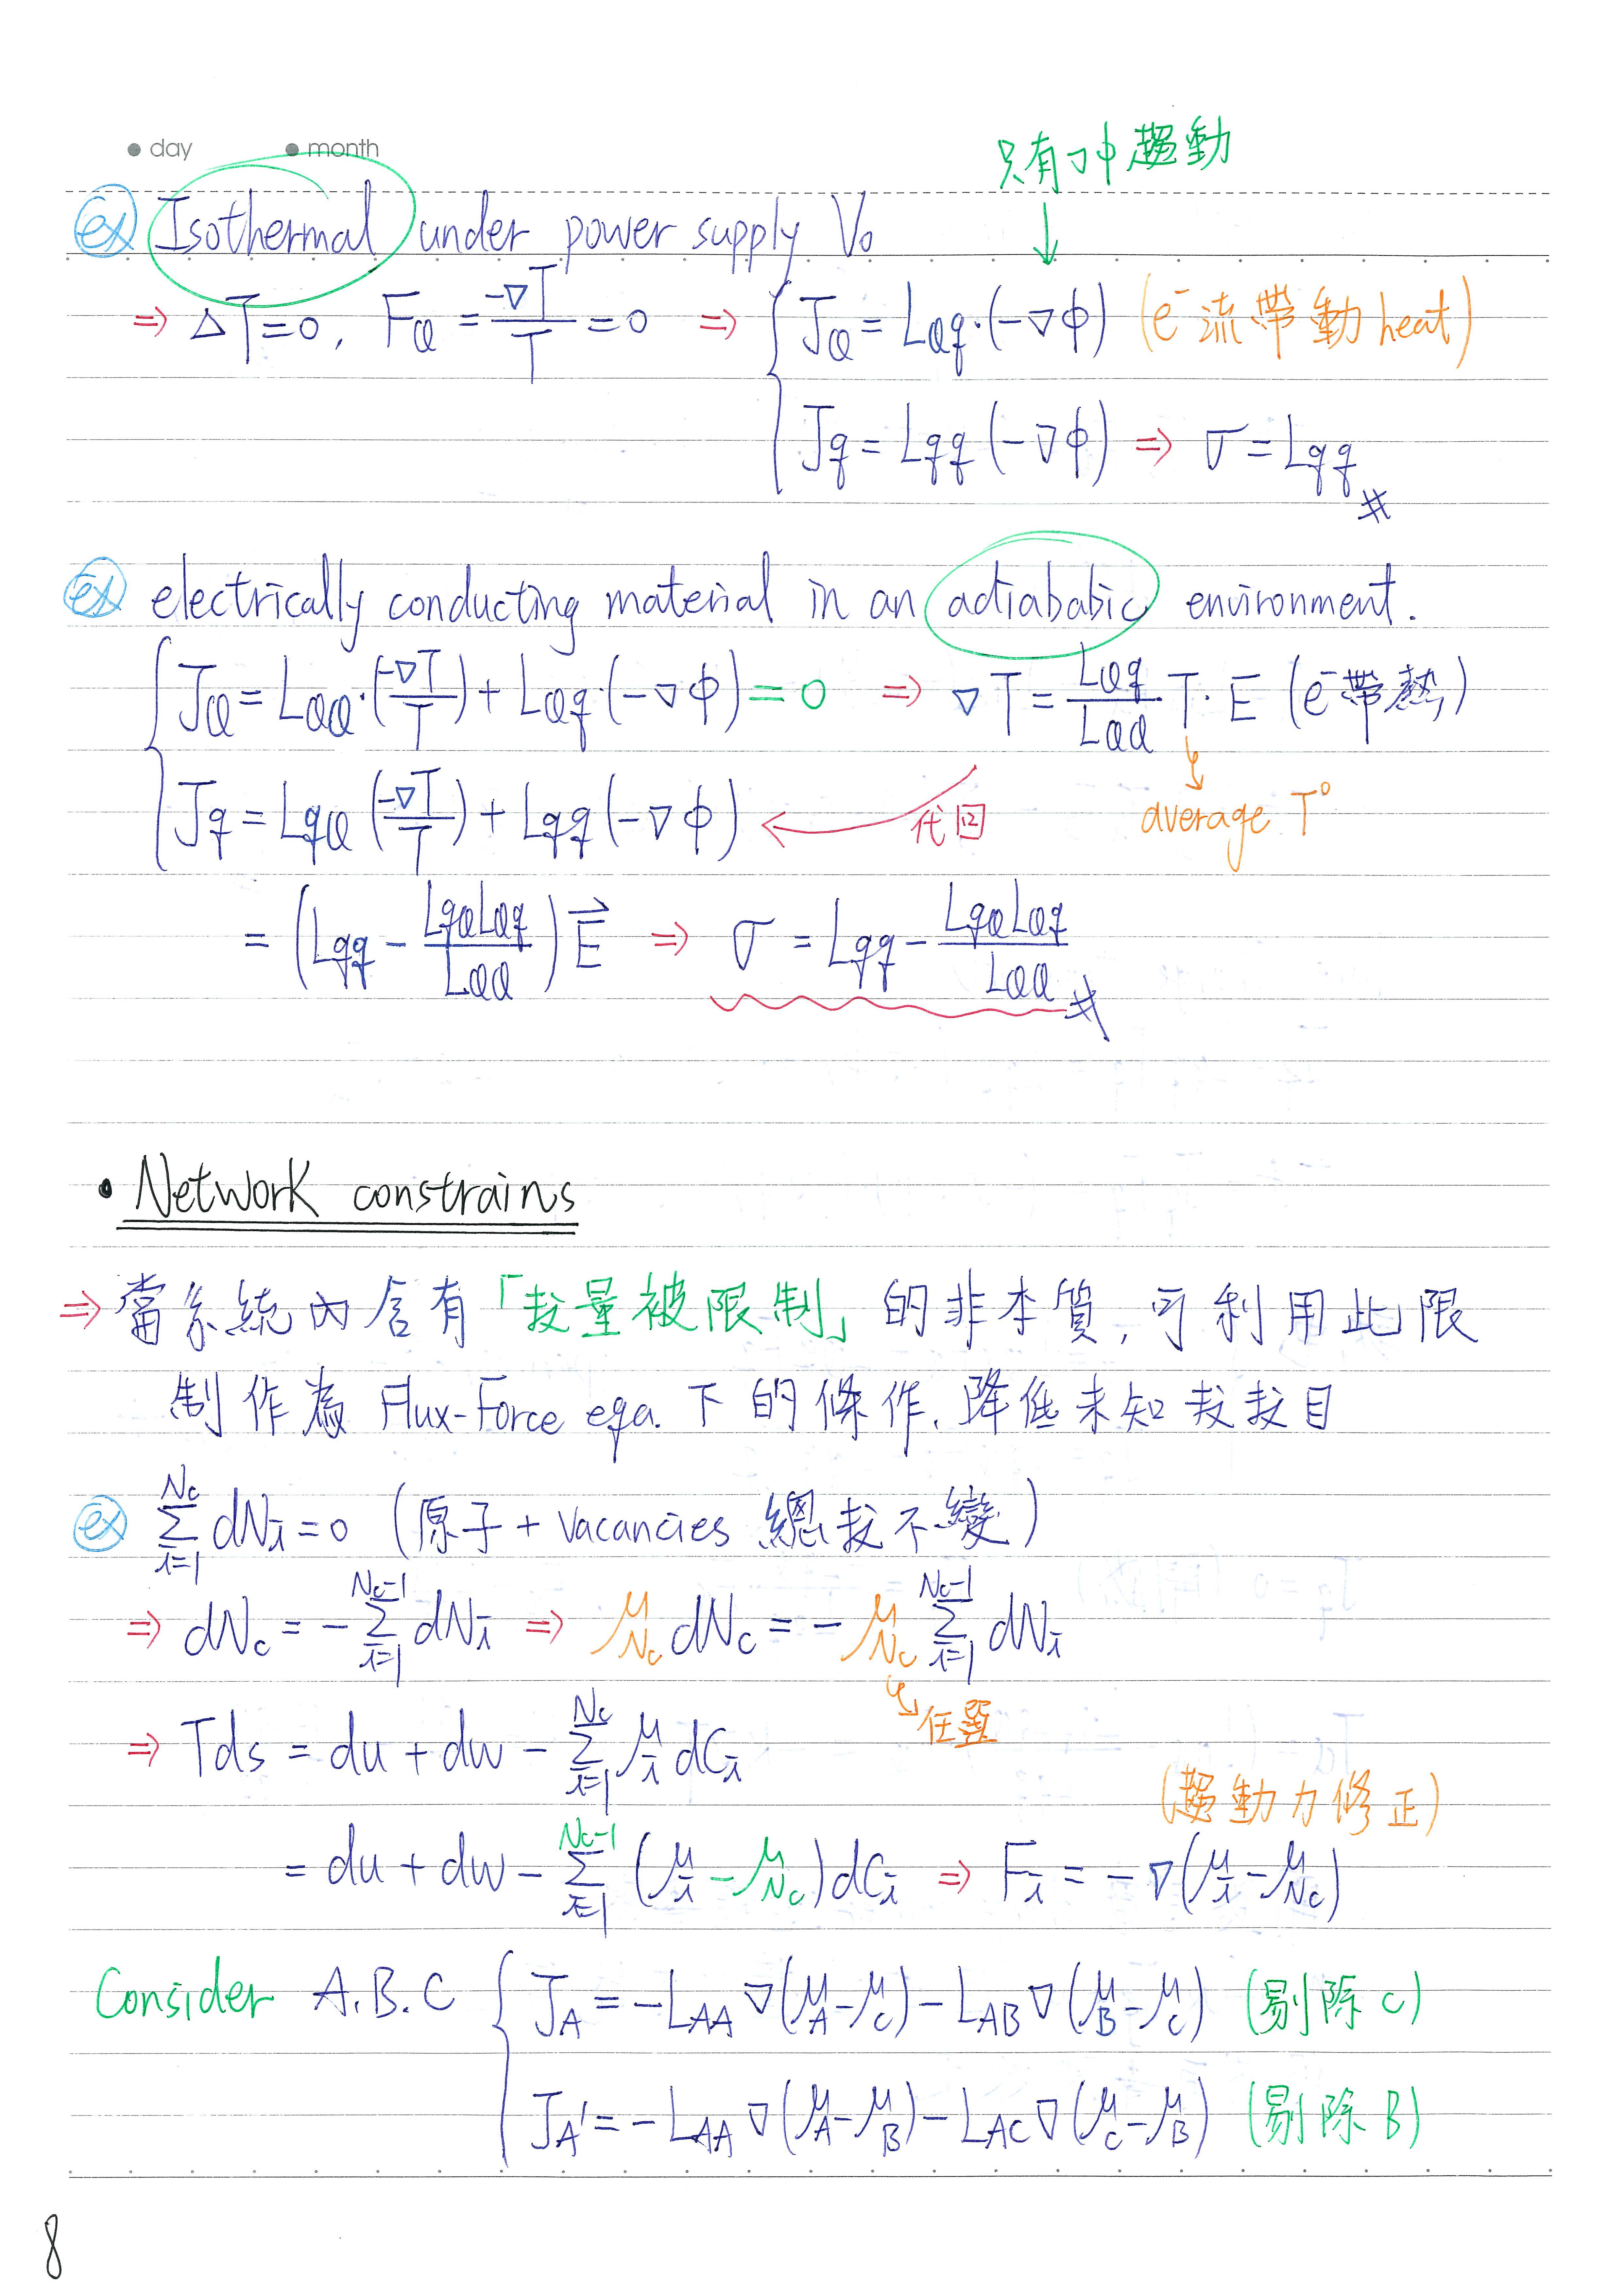 ● day ● month
只有▽φ趨動
ex Isothermal under power supply V₀
⇒ ΔT=0, F_Q = -▽T/T = 0 ⇒ { J_Q = L_Qq·(-▽φ) (e⁻流帶動heat)
J_q = L_qq (-▽φ) ⇒ σ = L_qq #
ex electrically conducting material in an adiababic environment.
J_Q = L_QQ·(-▽T/T) + L_Qq·(-▽φ) = 0 ⇒ ▽T = L_Qq/L_QQ T·E (e⁻帶熱)
J_q = L_qQ (-▽T/T) + L_qq (-▽φ) ← 代回 average T°
= (L_qq - L_qQ L_Qq/L_QQ) E⃗ ⇒ σ = L_qq - L_qQ L_Qq/L_QQ #
• Network constrains
⇒ 當系統內含有「數量被限制」的非本質,可利用此限
制作為 Flux-Force eqa. 下的條件,降低未知數數目
ex Σ_{i=1}^{Nc} dN_i = 0 (原子 + vacancies 總數不變)
⇒ dN_c = -Σ_{i=1}^{Nc-1} dN_i ⇒ μ_Nc dN_c = -μ_Nc Σ_{i=1}^{Nc-1} dN_i
任選
⇒ Tds = du + dw - Σ_{i=1}^{Nc} μ_i dC_i
(趨動力修正)
= du + dw - Σ_{i=1}^{Nc-1} (μ_i - μ_Nc) dC_i ⇒ F_i = -▽(μ_i - μ_Nc)
Consider A.B.C { J_A = -L_AA ▽(μ_A - μ_C) - L_AB ▽(μ_B - μ_C) (剔除C)
J_A' = -L_AA ▽(μ_A - μ_B) - L_AC ▽(μ_C - μ_B) (剔除B)
8